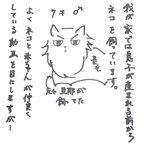 我が家では息子が産まれる前から
ネコを飼っています。
7才 ♂
長毛
元々旦那が
飼ってた
よくネコと赤ちゃんが仲良く
している動画を目にしますが…